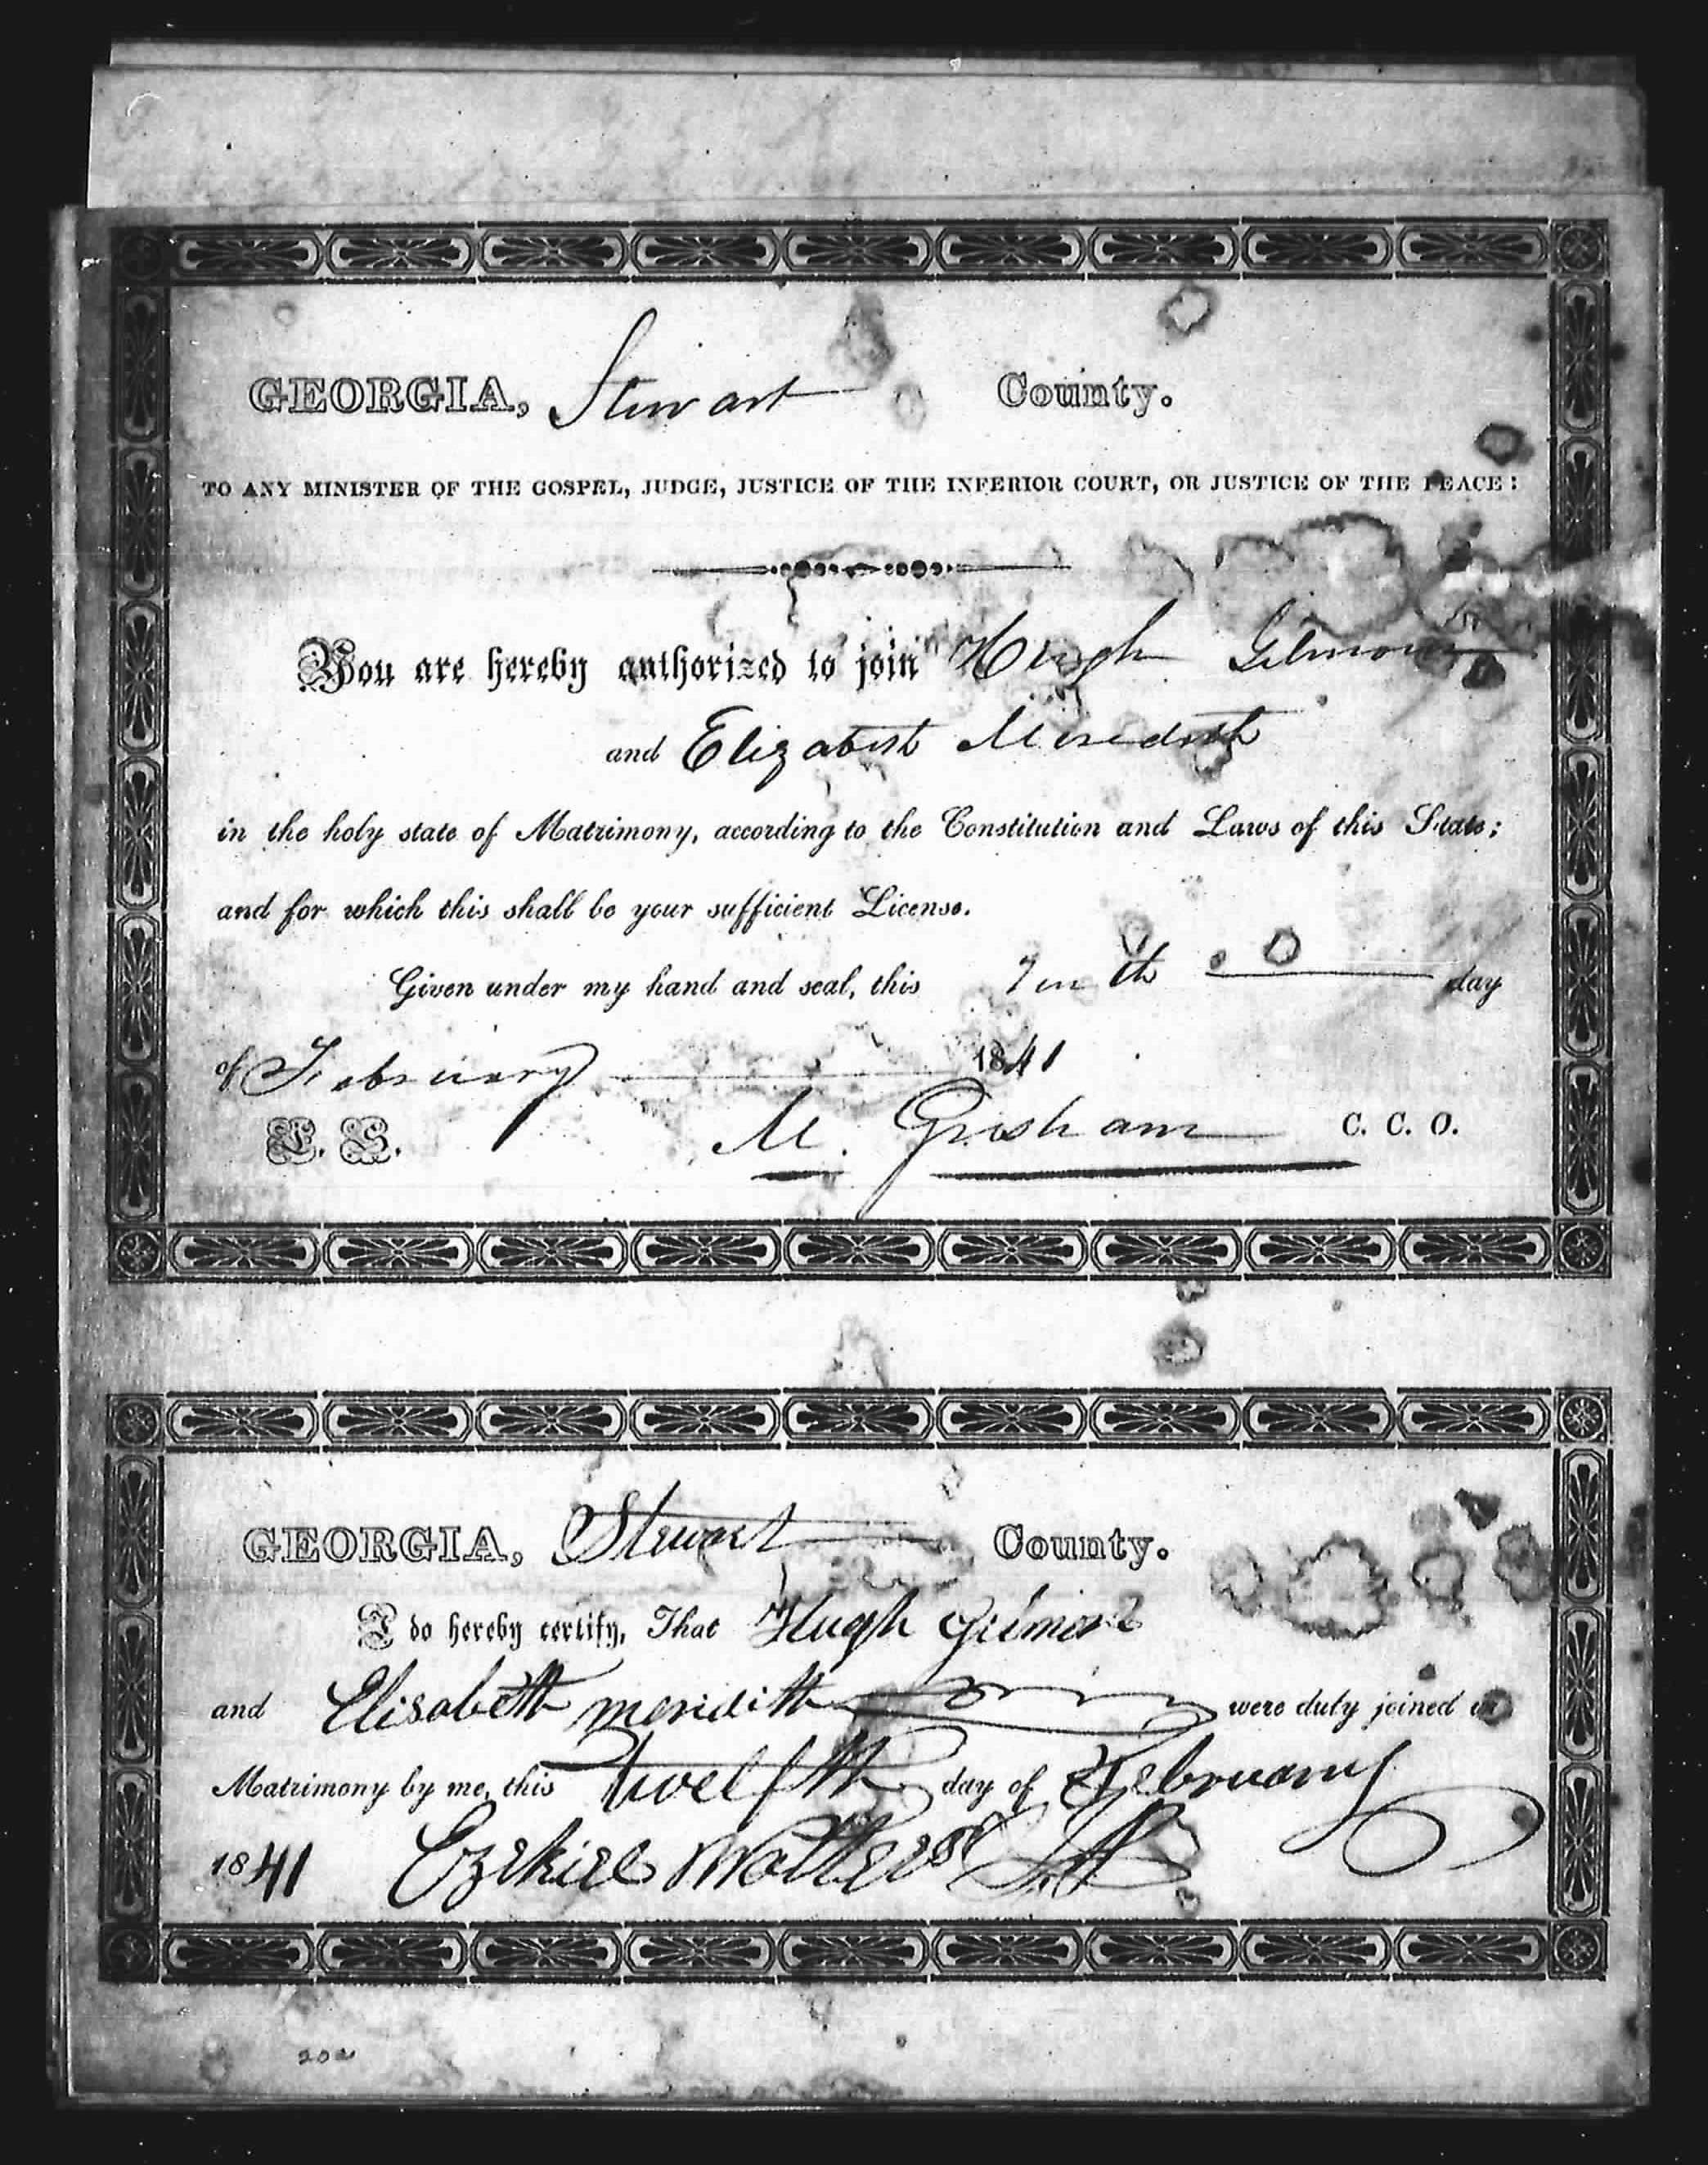 GEORGIA, Stewart County.
TO ANY MINISTER OF THE GOSPEL, JUDGE, JUSTICE OF THE INFERIOR COURT, OR JUSTICE OF THE PEACE:
You are hereby authorized to join Hugh Gilmore
and Elizabeth Meredith
in the holy state of Matrimony, according to the Constitution and Laws of this State;
and for which this shall be your sufficient License.
Given under my hand and seal, this Tenth day
of February 1841
L. S. M. Grisham C. C. O.
GEORGIA, Stewart County.
I do hereby certify, That Hugh Gilmore
and Elisabeth meridith were duly joined in
Matrimony by me, this Twelfth day of February
1841 Ezekiel
202